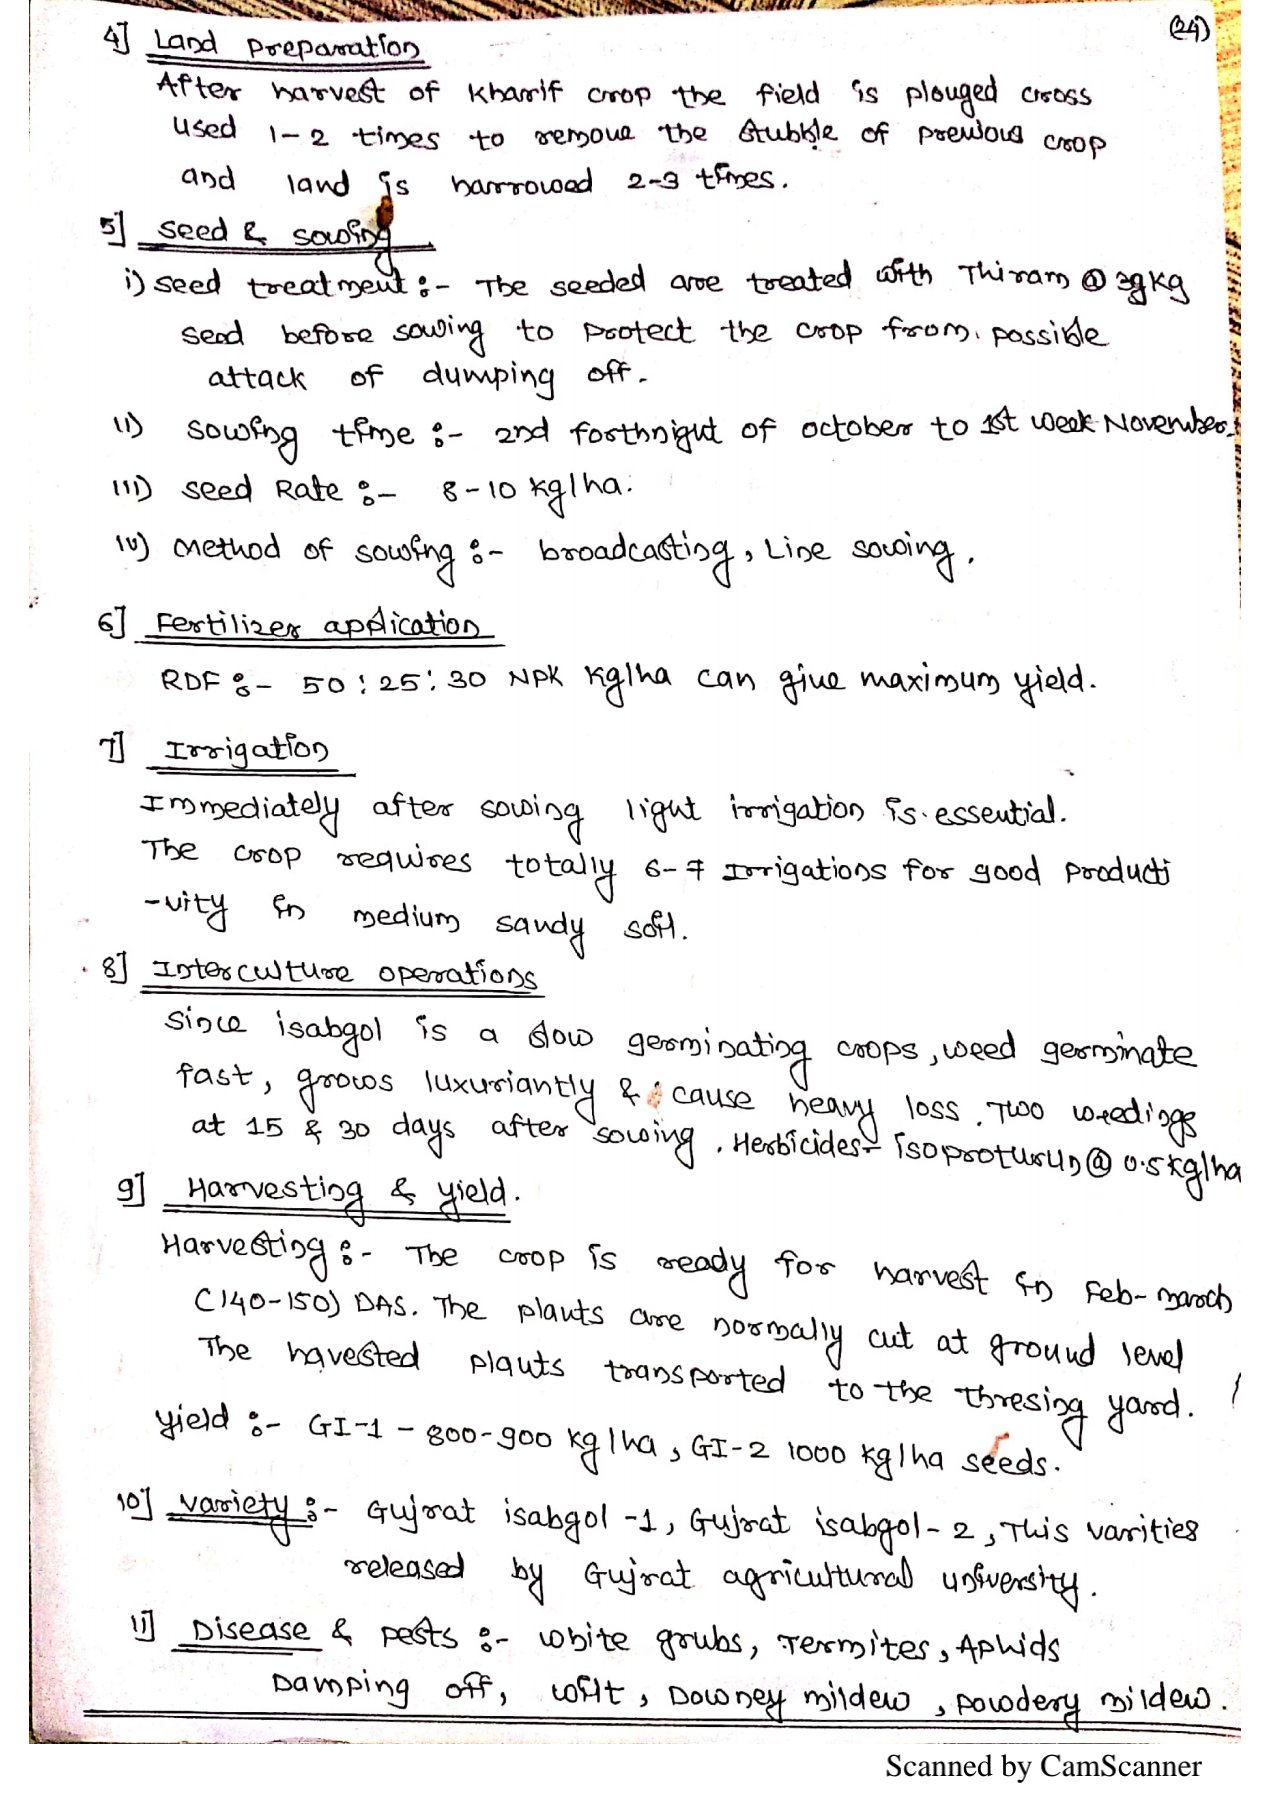 (24)
4] Land Preparation
After harvest of Kharif crop the field is plouged cross
used 1-2 times to remove the stubble of previous crop
and land is harrowed 2-3 times.
5] Seed & sowing
i) seed treatment :- The seeded are treated with Thiram @ 3g kg
seed before sowing to protect the crop from. possible
attack of dumping off.
ii) sowing time :- 2nd forthnight of october to 1st week November.
iii) seed Rate :- 8-10 kg/ha.
iv) method of sowing :- broadcasting, Line sowing.
6] Fertilizer application
RDF :- 50:25:30 NPK kg/ha can give maximum yield.
7] Irrigation
Immediately after sowing light irrigation is essential.
The crop requires totally 6-7 Irrigations for good producti
-vity in medium sandy soil.
8] Interculture operations
Since isabgol is a slow germinating crops, weed germinate
fast, grows luxuriantly & cause heavy loss. Two weedings
at 15 & 30 days after sowing. Herbicides- isoproturun @ 0.5kg/ha
9] Harvesting & yield.
Harvesting :- The crop is ready for harvest in Feb-march
(140-150) DAS. The plants are normally cut at ground level
The havested plants transported to the thresing yard.
yield :- GI-1 - 800-900 kg/ha, GI-2 1000 kg/ha seeds.
10] variety :- Gujrat isabgol -1, Gujrat isabgol-2, This varities
released by Gujrat agricultural university.
11] Disease & pests :- white grubs, Termites, Aphids
Damping off, wilt, Downey mildew, powdery mildew.
Scanned by CamScanner